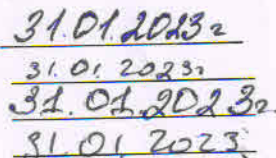 31.01.2023г
31.01.2023г
31.01.2023г.
31.01.2023